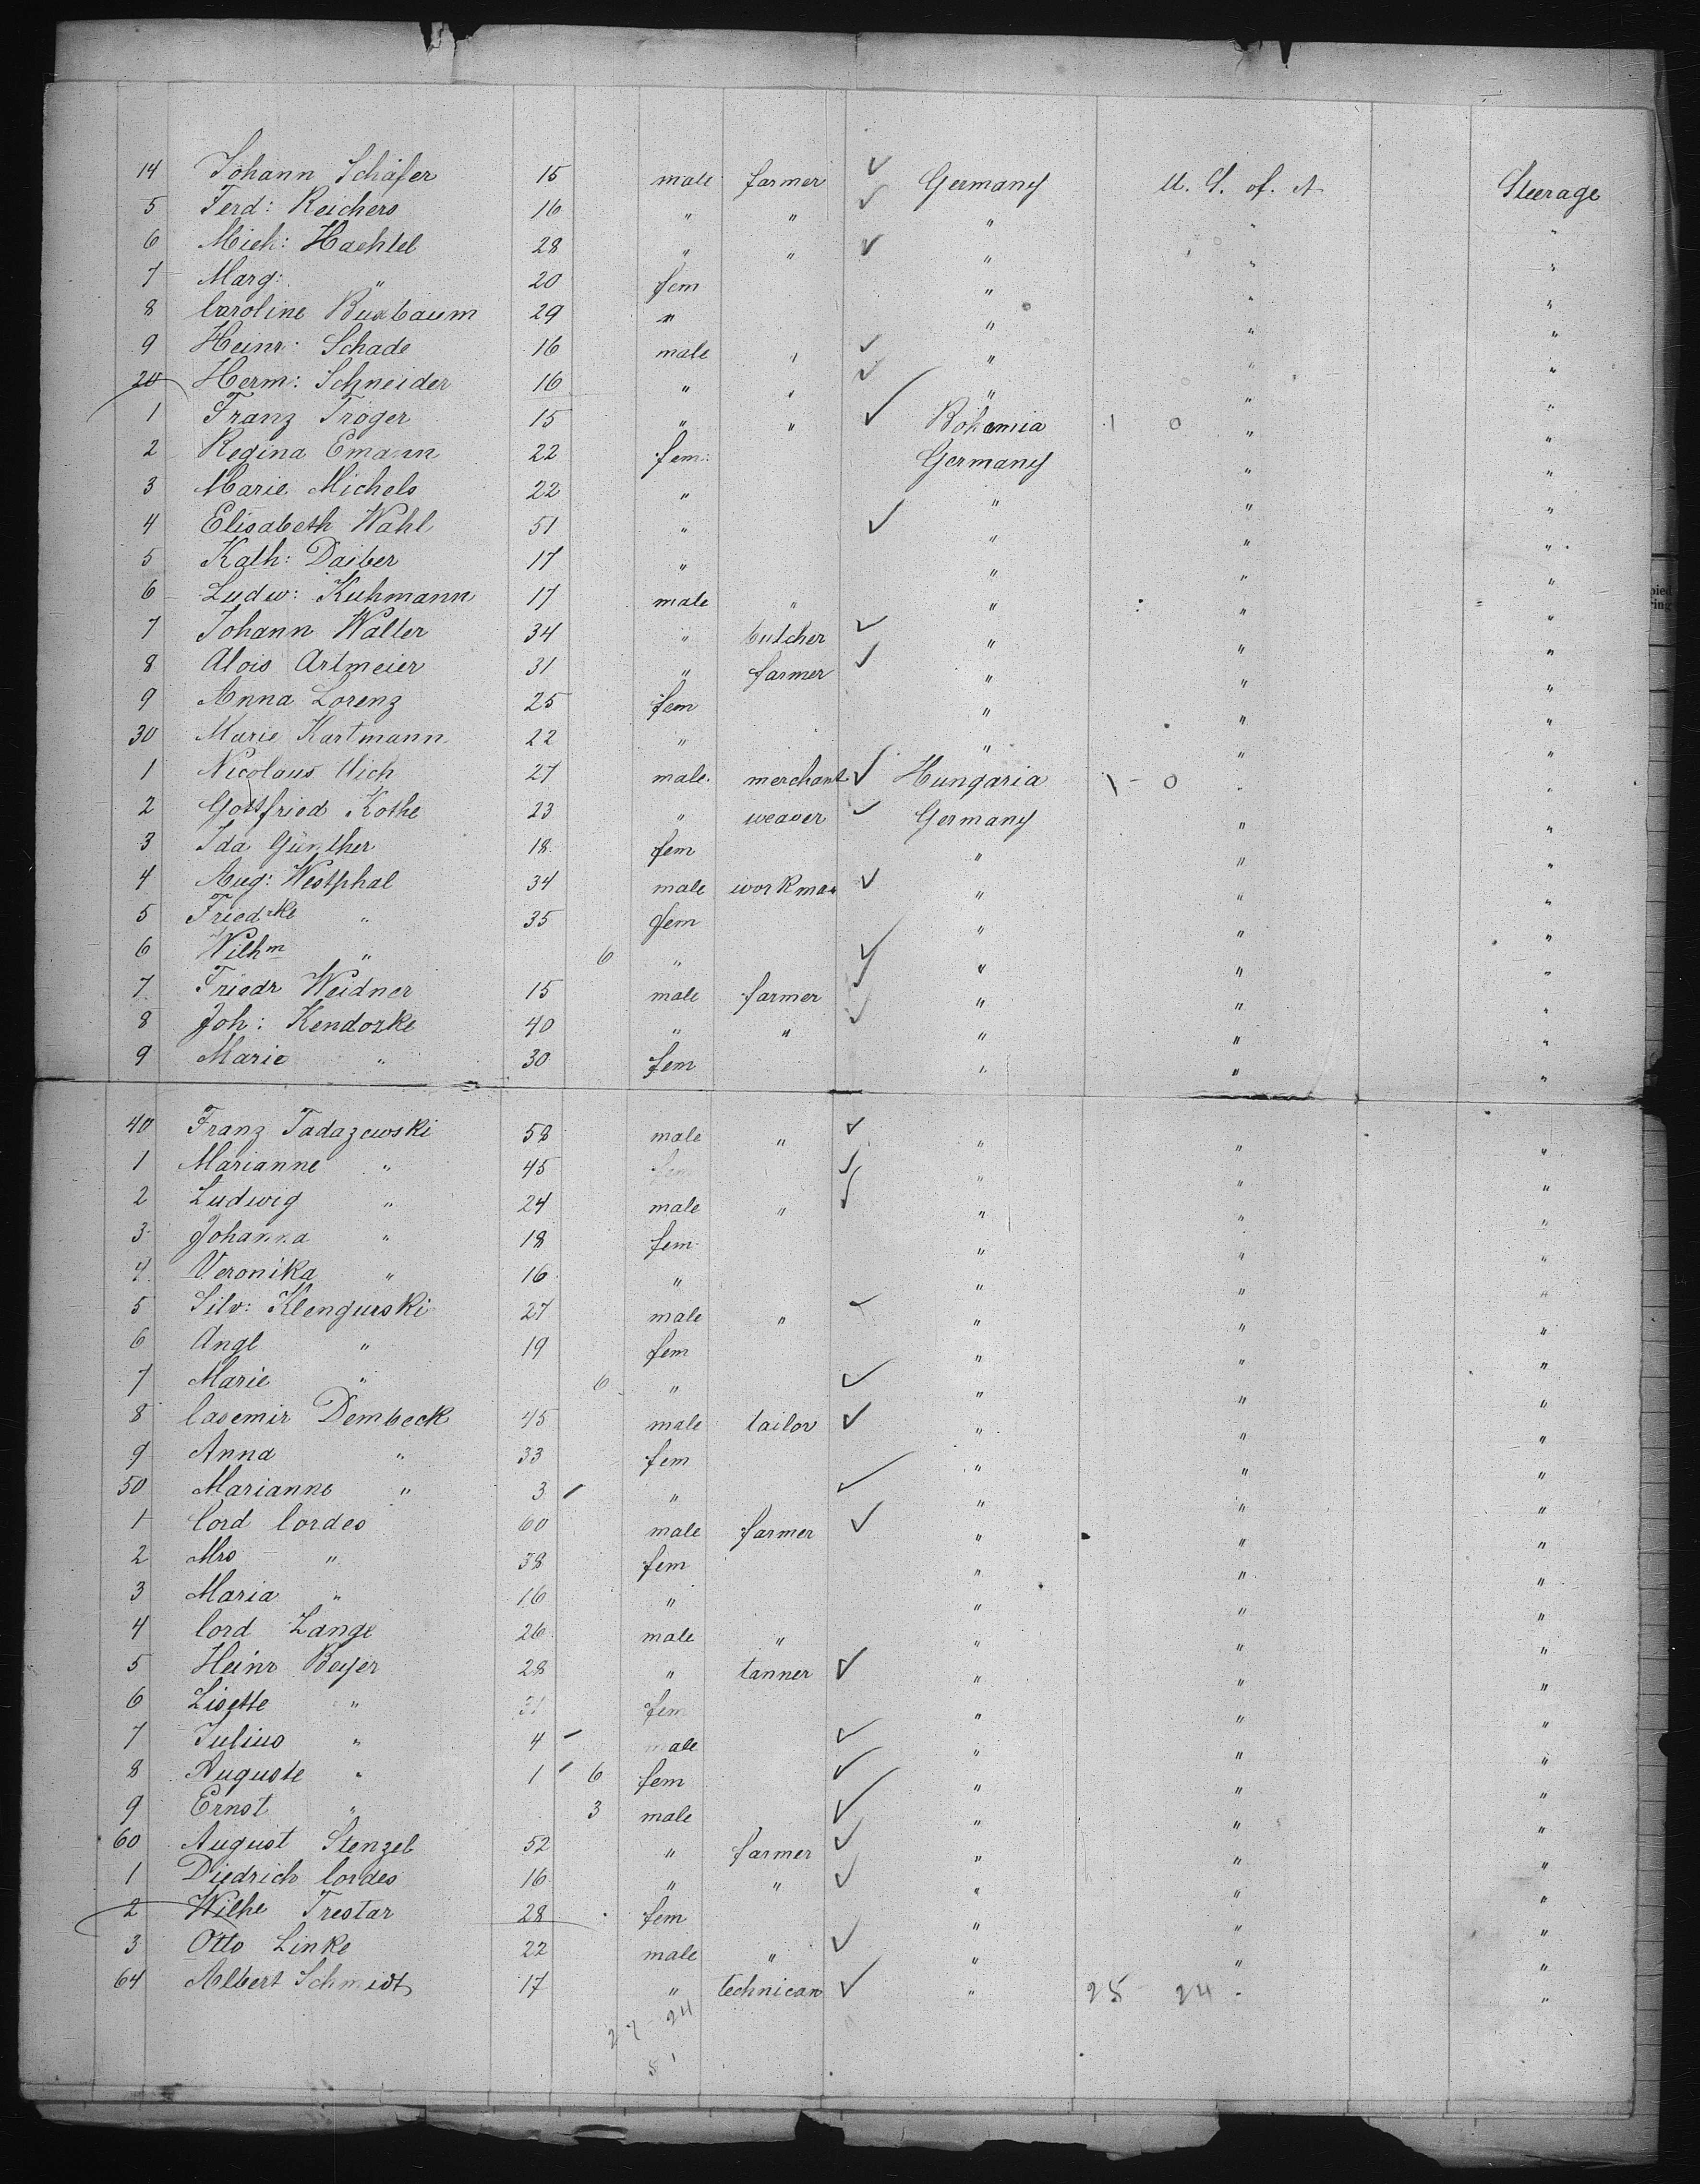 14 Johann Schäfer 15 male farmer ✓ Germany U. S. of. A Steerage
5 Ferd: Reichers 16 " " ✓ " " "
6 Mich: Hachtel 28 " " ✓ " " "
7 Marg: " 20 fem " " "
8 Caroline Buxbaum 29 " " " "
9 Heinr: Schade 16 male " ✓ " " "
20 Herm: Schneider 16 " " ✓ " " "
1 Franz Tröger 15 " " ✓ Bohemia 1 0 " "
2 Regina Emann 22 fem: Germany " "
3 Marie Michels 22 " " " "
4 Elisabeth Wahl 51 " ✓ " " "
5 Kath: Daiber 17 " " " "
6 Ludw: Kuhmann 17 male " " " "
7 Johann Walter 34 " butcher ✓ " " "
8 Alois Artmeier 31 " farmer ✓ " " "
9 Anna Lorenz 25 fem " " "
30 Marie Kartmann 22 " " " "
1 Nicolaus Uich 27 male merchant ✓ Hungaria 1 - 0 " "
2 Gottfried Kothe 23 " weaver ✓ Germany " "
3 Ida Günther 18 fem " " "
4 Aug: Westphal 34 male workman ✓ " " "
5 Friedrke " 35 fem " " "
6 Wilhm " 6 " ✓ " " "
7 Friedr Weidner 15 male farmer ✓ " " "
8 Joh: Kendozke 40 " " ✓ " " "
9 Marie " 30 fem " " "
40 Franz Tadazewski 58 male " ✓ " " "
1 Marianne " 45 fem ✓ " " "
2 Ludwig " 24 male " ✓ " " "
3 Johanna " 18 fem " " "
4 Veronika " 16 " " " "
5 Silv: Klengurski 27 male " ✓ " " "
6 Angl " 19 fem " " "
7 Marie " 6 " ✓ " " "
8 Casemir Dembeck 45 male tailor ✓ " " "
9 Anna " 33 fem " " "
50 Marianne " 3 " ✓ " " "
1 Cord Cordes 60 male farmer ✓ " " "
2 Mrs " 38 fem " " "
3 Maria " 16 " " " "
4 Cord Lange 26 male " " " "
5 Heinr Beyer 28 " tanner ✓ " " "
6 Lisette " 31 fem " " "
7 Julius " 4 male ✓ " " "
8 Auguste " 1 6 fem ✓ " " "
9 Ernst " 3 male ✓ " " "
60 August Stenzel 52 " farmer ✓ " " "
1 Diedrich Cordes 16 " " ✓ " " "
2 Wilhe Trestar 28 fem " " "
3 Otto Linke 22 male " ✓ " " "
64 Albert Schmidt 17 " technican ✓ " 25 24 " "
27 - 24
51